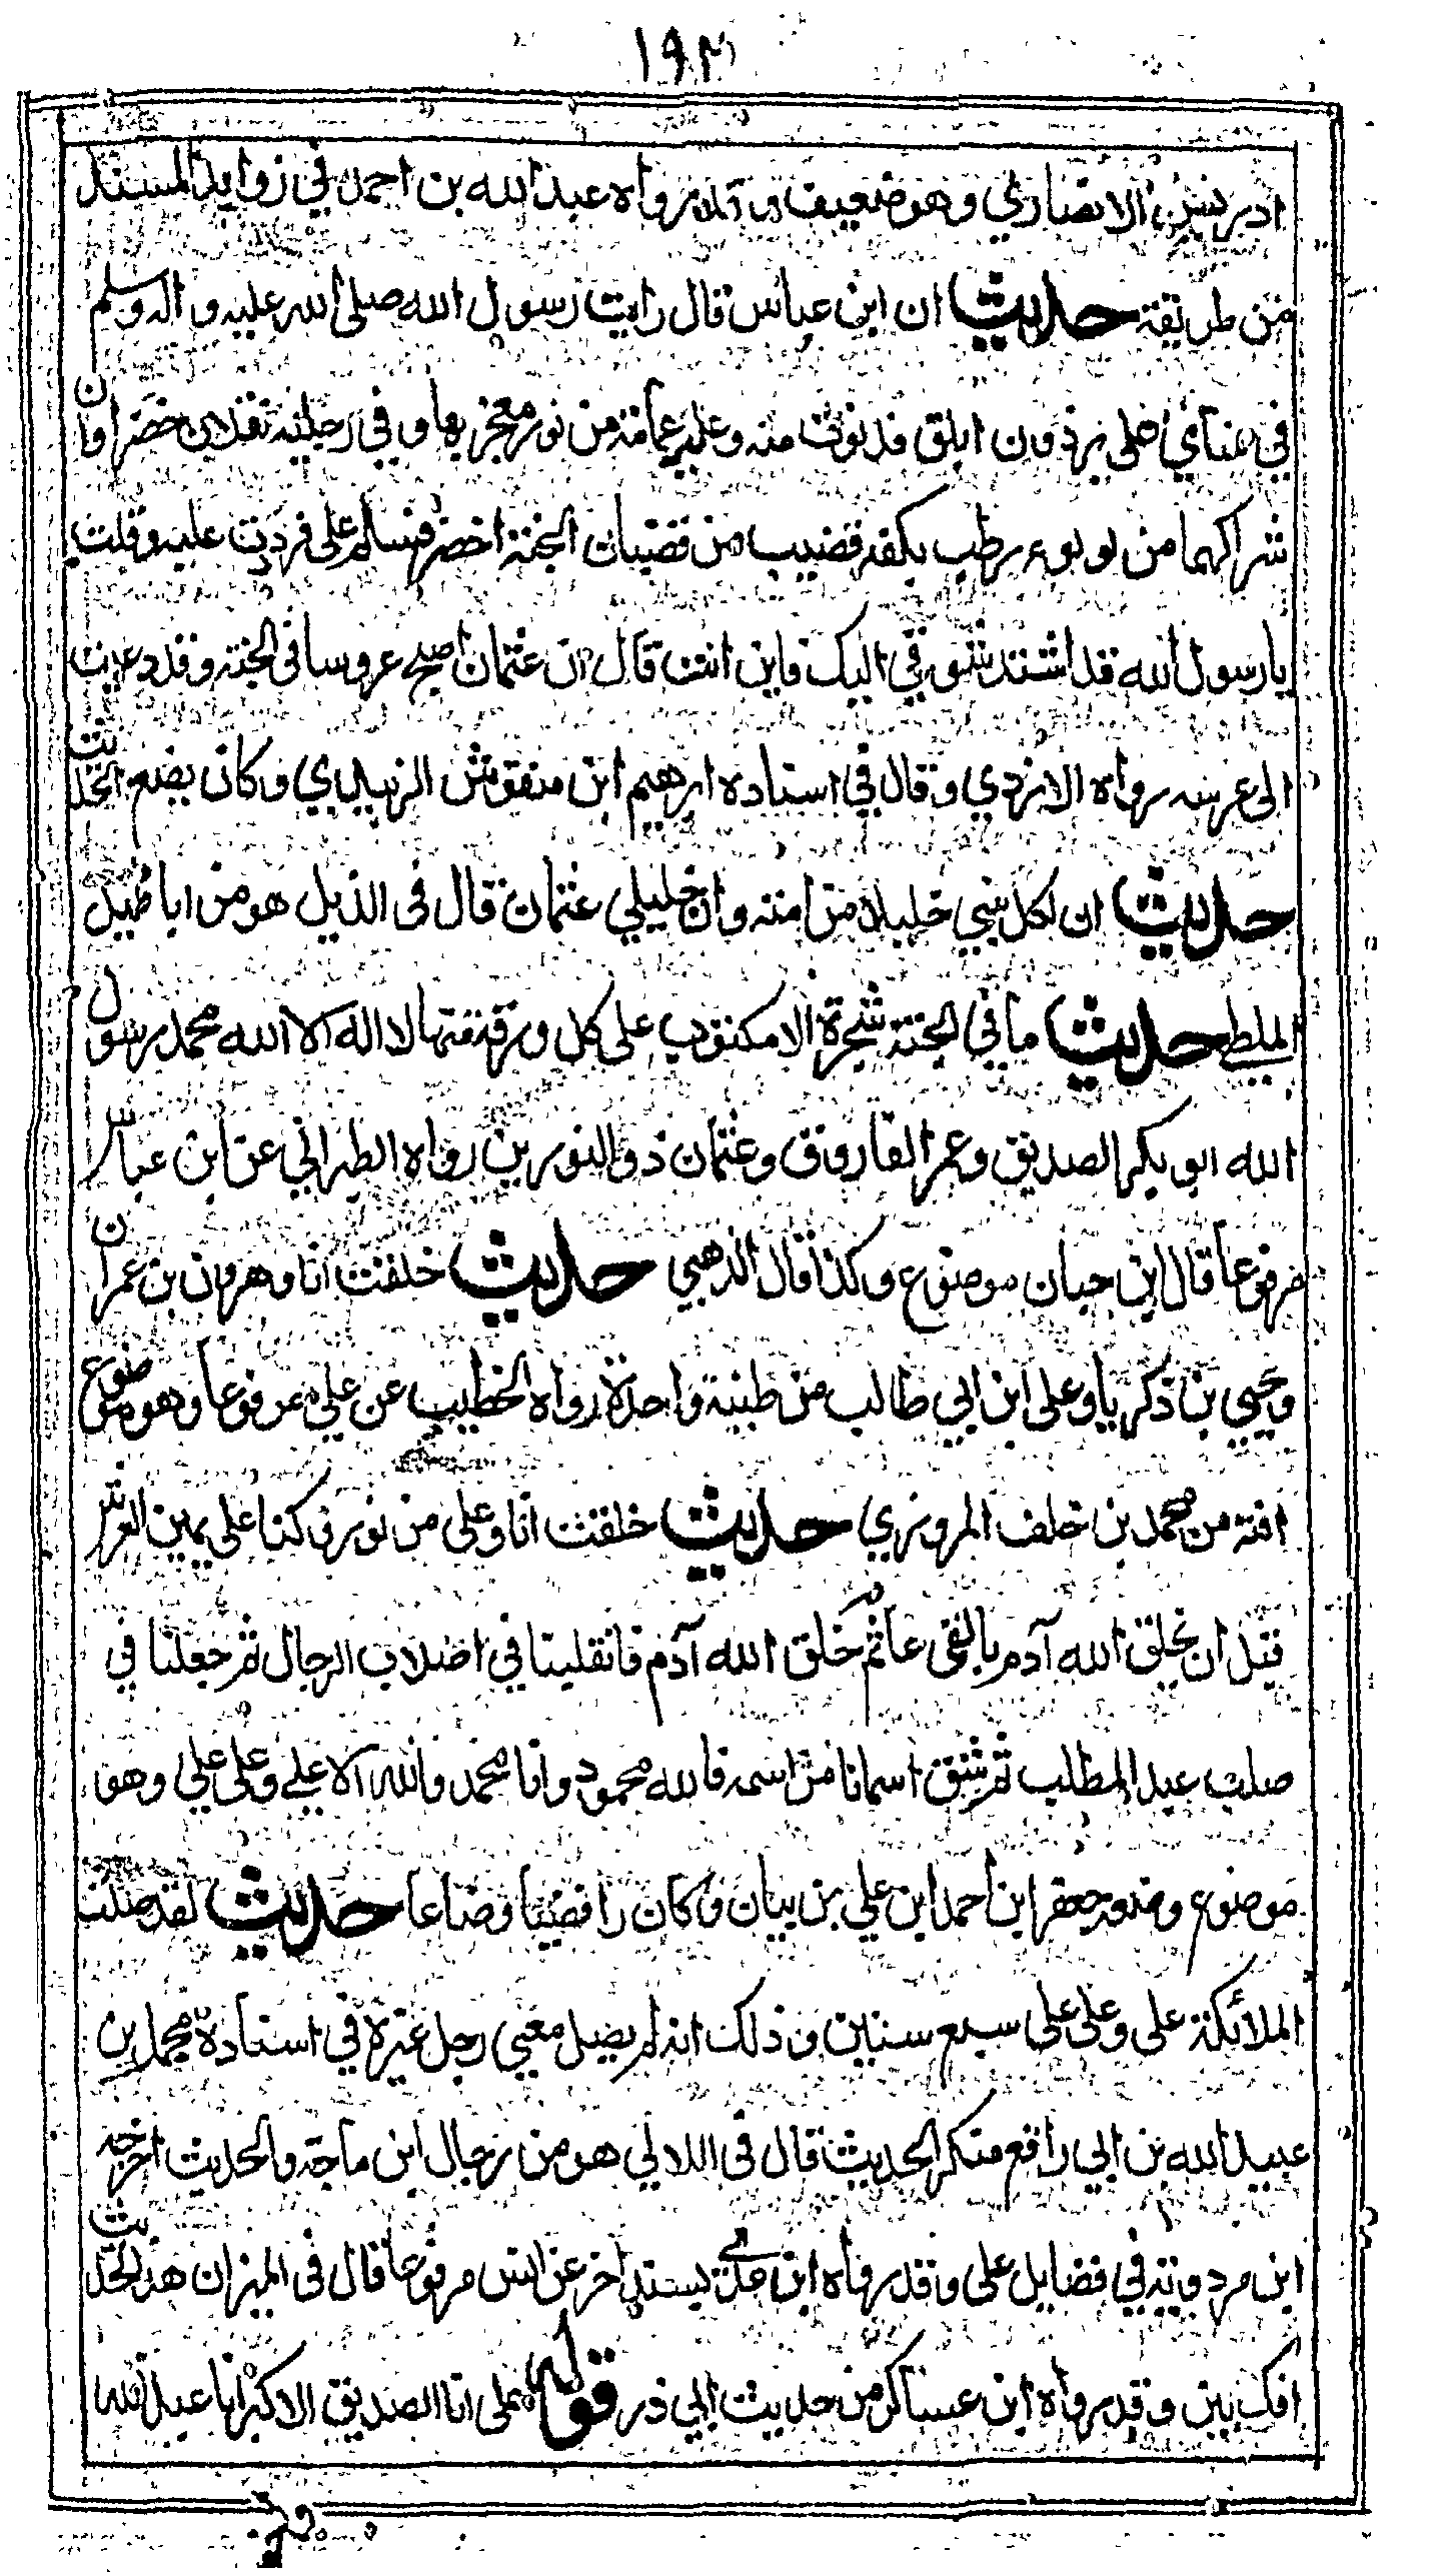 ١٩٣
ادريس الانصاري وهو ضعيف وقد رواه عبد الله بن احمد في زوايد المسند
من طريقة حديث ان ابن عباس قال رايت رسول الله صلى الله عليه واله وسلم
في منامي على برذون ابلق قد نوت منه وعليه عمامة من نور معتجر بها وفي رجليه نعلان خضراوان
شراكهما من لولوء رطب بكفه قضيب من قضبان الجنة اخضر فسلم على فرددت عليه وقلت
يا رسول الله قد اشتد شوقي اليك فاين انت قال ان عثمان اصبح عروسا في الجنة وقد دعيت
الى عرسه رواه الازدي وقال في اسناده ابرهيم ابن منقوش الزبيدي وكان يضع الحديث
حديث ان لكل نبي خليلا من امته وان خليلي عثمان قال في الذيل هو من اباطيل
الملطي حديث ما في الجنة شجرة الا مكتوب على كل ورقة منها لا اله الا الله محمد رسول
الله ابو بكر الصديق وعمر الفاروق وعثمان ذو النورين رواه الطبراني عن ابن عباس
مرفوعا قال ابن حبان موضوع وكذا قال الذهبي حديث خلقت انا وهرون بن عمران
ويحيى بن زكريا وعلى ابن ابي طالب من طينة واحدة رواه الخطيب عن علي مرفوعا وهو موضوع
افته من محمد بن خلف المروزي حديث خلقت انا وعلى من نور وكنا على يمين العرش
قبل ان يخلق الله آدم بالفي عام ثم خلق الله آدم فانقلبنا في اصلاب الرجال ثم جعلنا في
صلب عبد المطلب ثم شق اسمانا من اسمه فالله محمود وانا محمد والله الاعلى وعلى علي وهو
موضوع وضعه جعفر ابن احمد ابن علي بن بيان وكان رافضيا وضاعا حديث لقد صلت
الملائكة على وعلى على سبع سنين وذلك انه لم يصل معي رجل غيره في اسناده محمد بن
عبيد الله بن ابي رافع منكر الحديث قال في اللالي هو من رجال ابن ماجة والحديث اخرجه
ابن مردويه في فضايل على وقد رواه ابن عدي بسند اخر عن انس مرفوعا قال في الميزان هذا الحديث
افك بين وقد رواه ابن عساكر من حديث ابي ذر قول على انا الصديق الاكبر انا عبد الله